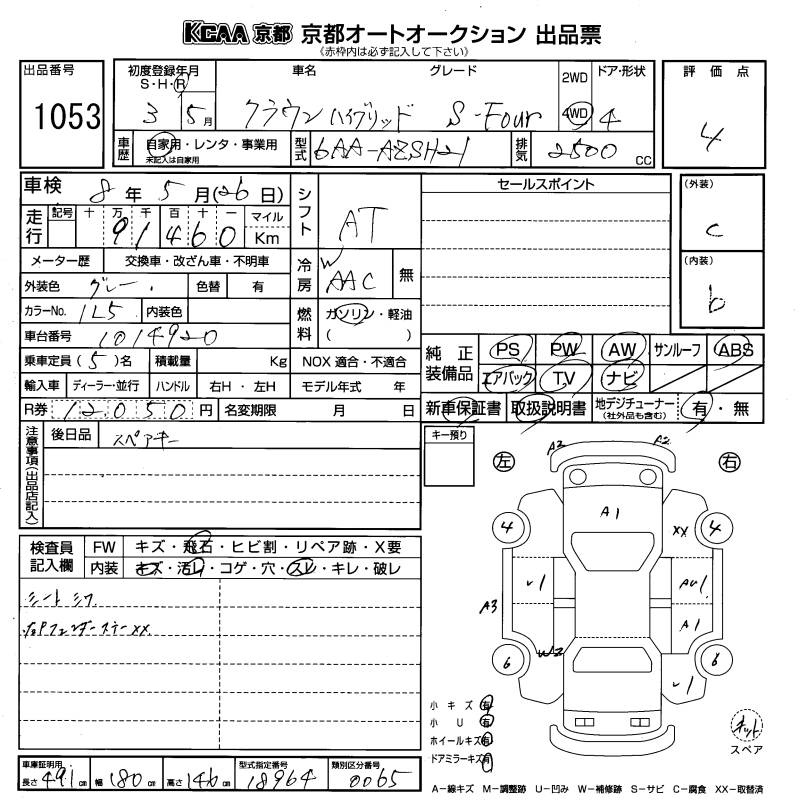 KCAA 京都 京都オートオークション 出品票
《赤枠内は必ず記入して下さい》
出品番号
1053
初度登録年月
S・H・R
3 5月
車名
グレード
クラウン ハイブリッド S-Four
2WD
4WD
ドア・形状
4
評価点
4
車歴
自家用・レンタ・事業用
未記入は自家用
型式
6AA-AZSH21
排気
2500 CC
車検
8年 5月(26日)
シフト
AT
セールスポイント
(外装)
c
(内装)
b
走行
記号 十 万 千 百 十 一
91460
マイル
Km
メーター歴 交換車・改ざん車・不明車
冷房
W
AAC
無
外装色 グレー 色替 有
カラーNo. 1L5 内装色
燃料
ガソリン・軽油
( )
車台番号 1014920
乗車定員(5)名 積載量 Kg NOX 適合・不適合
純正装備品
PS PW AW サンルーフ ABS
エアバック TV ナビ
輸入車 ディーラー・並行 ハンドル 右H・左H モデル年式 年
R券 12050円 名変期限 月 日
新車保証書 取扱説明書 地デジチューナー(社外品も含む) 有・無
注意事項(出品店記入)
後日品 スペアキー
キー預り
左
右
A3 A2
A1
XX
4 4
U1
AU1
A3
A1
W2
6 6
U1
検査員記入欄
FW キズ・飛石・ヒビ割・リペア跡・X要
内装 キズ・汚れ・コゲ・穴・スレ・キレ・破レ
シートシワ
小キズ 有
小U 有
ホイールキズ 有
ドアミラーキズ 有
スペア
車庫証明用
長さ 491cm 幅 180cm 高さ 146cm
型式指定番号
18964
類別区分番号
0065
A−線キズ M−調整跡 U−凹み W−補修跡 S−サビ C−腐食 XX−取替済